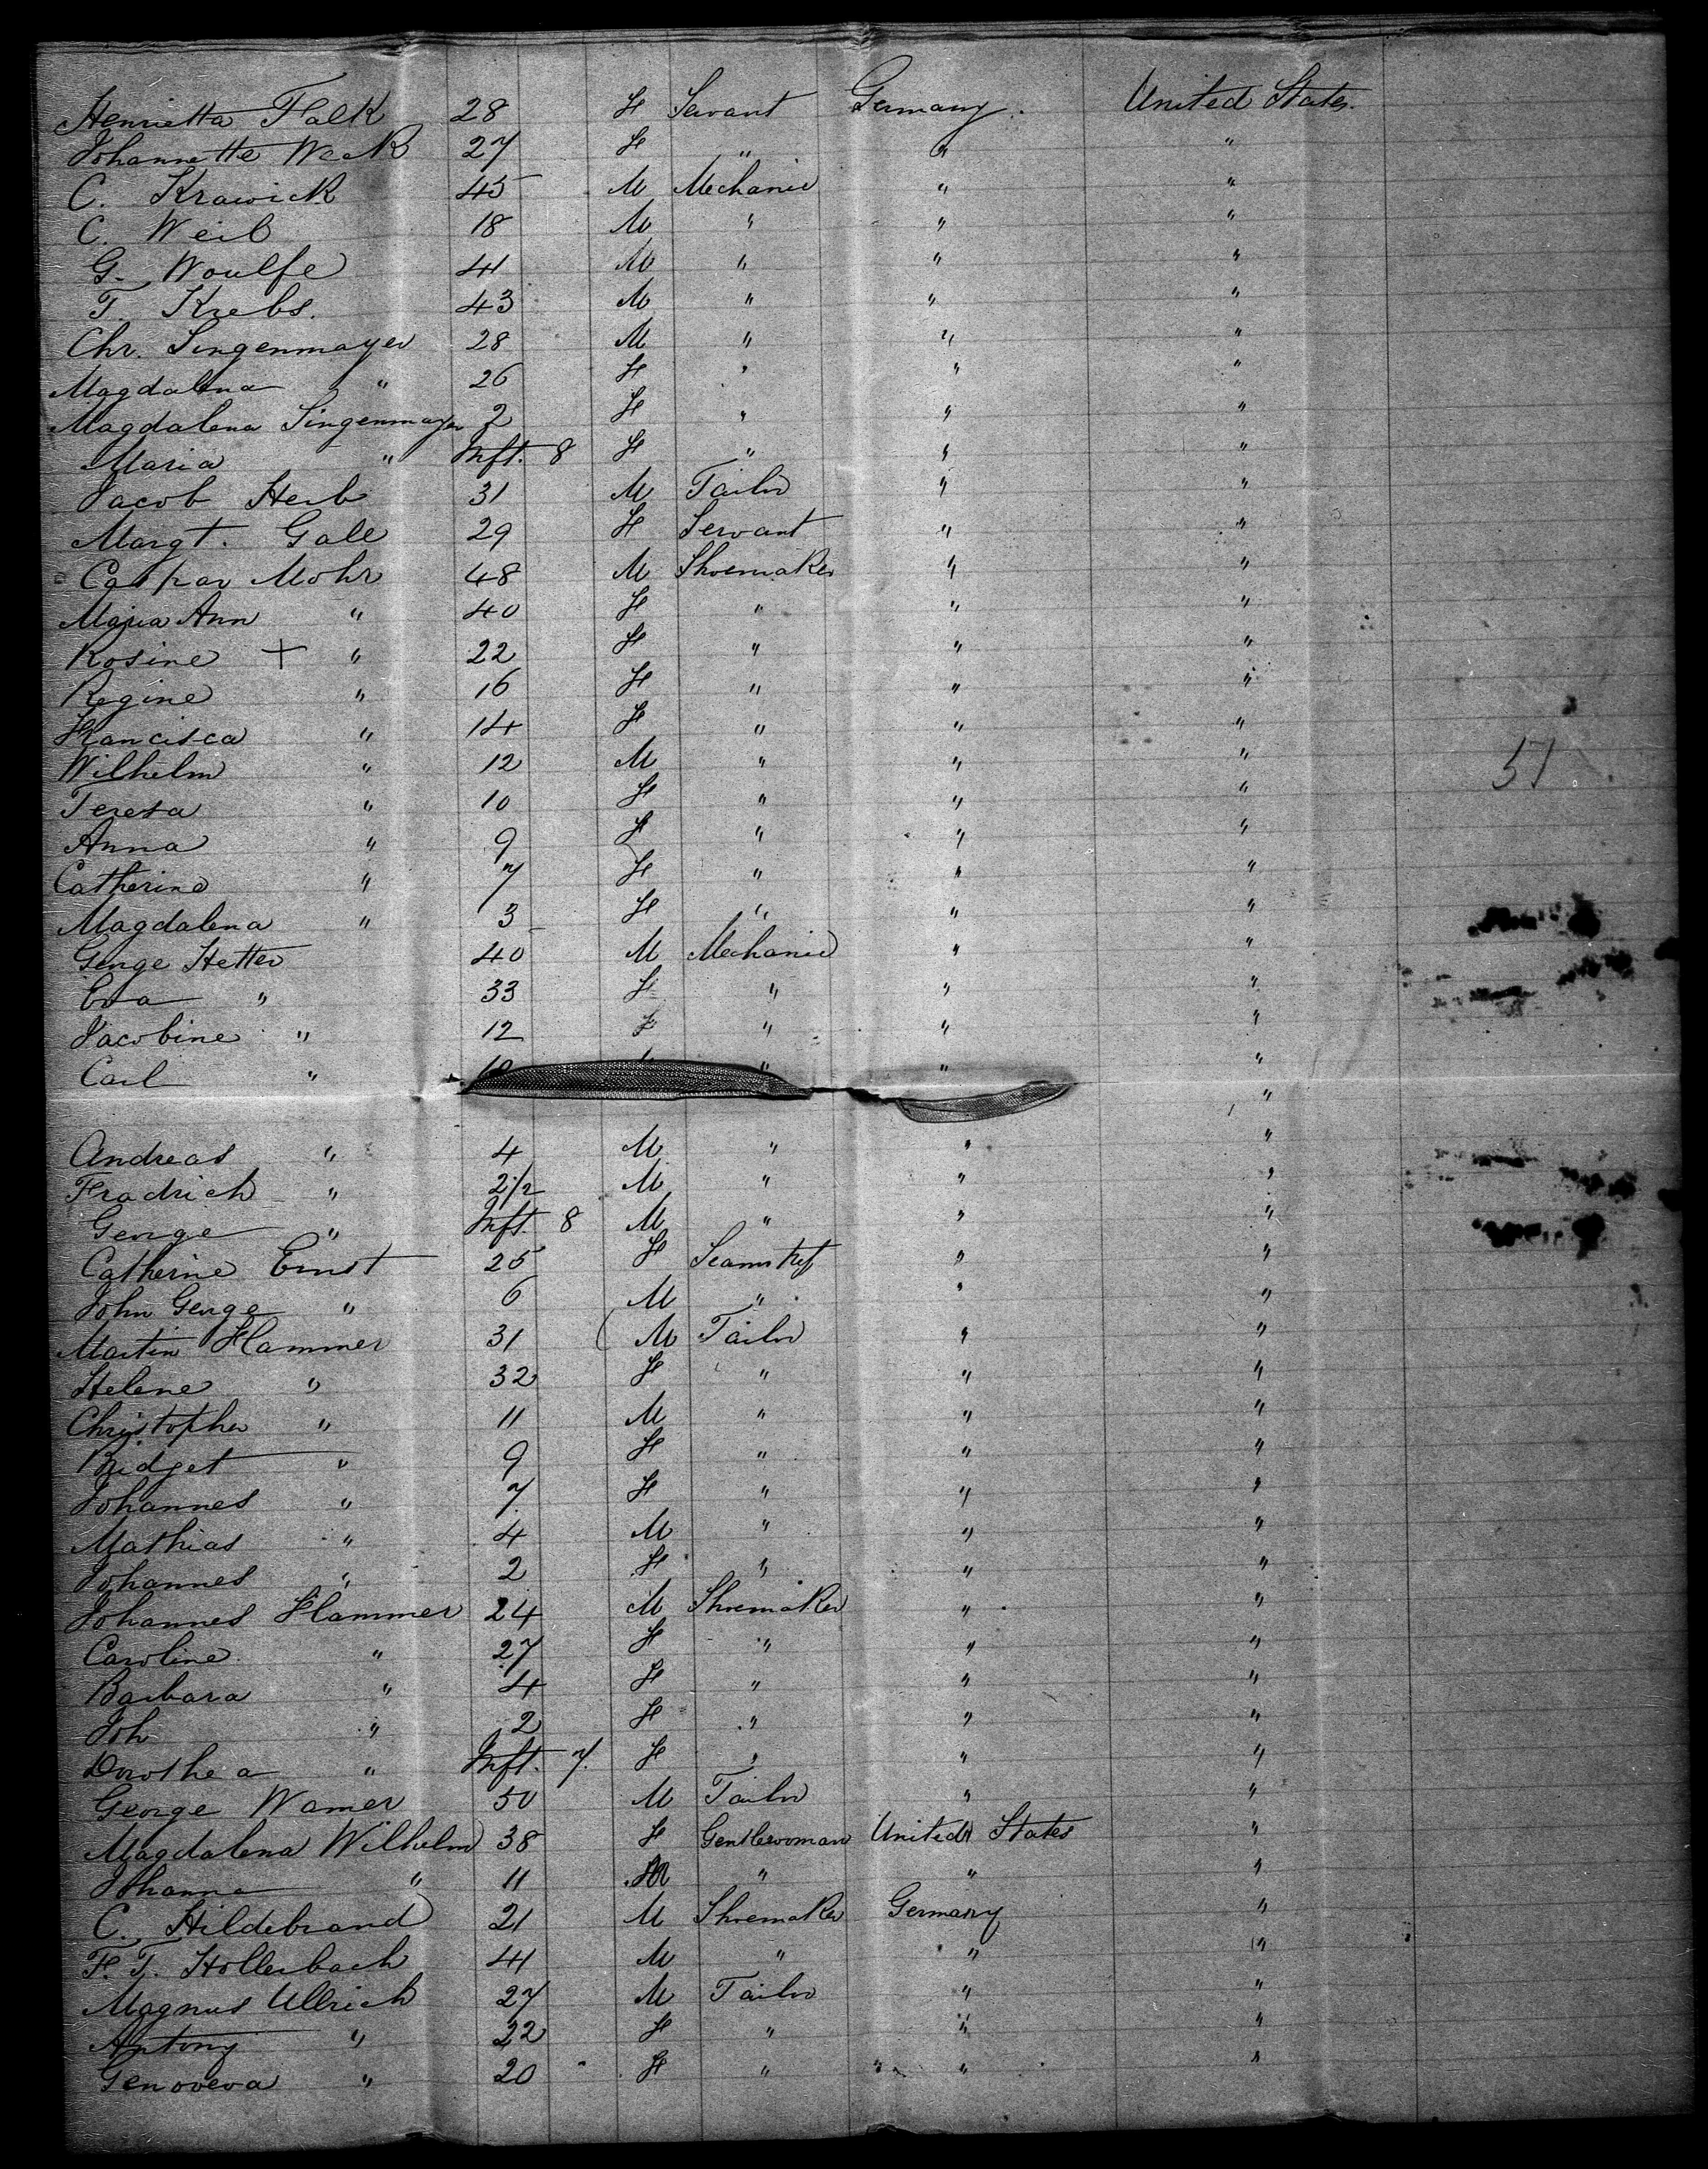 Henrietta Falk 28 F Servant Germany. United States.
Johannette Weck 27 F " " "
C. Krawick 45 M Mechanic " "
C. Weib 18 M " " "
G. Woulfe 41 M " " "
T. Krebs. 43 M " " "
Chr. Singenmayer 28 M " " "
Magdalena " 26 F " " "
Magdalena Singenmayer 2 F " " "
Maria " Inft. 8 F " " "
Jacob Herb 31 M Tailor " "
Margt. Gale 29 F Servant " "
Caspar Mohr 48 M Shoemaker " "
Maria Ann " 40 F " " "
Rosine + " 22 F " " "
Regine " 16 F " " "
Francisca " 14 F " " "
Wilhelm " 12 M " " "
57
Teresa " 10 F " " "
Anna " 9 F " " "
Catherine " 7 F " " "
Magdalena " 3 F " " "
George Hetter 40 M Mechanic " "
Eva " 33 F " " "
Jacobine " 12 F " " "
Carl " " " "
"
Andreas " 4 M " " "
Fradrich " 2 1/2 M " " "
George " Inft. 8 M " " "
Catherine Ernst 25 F Seamstress " "
John George " 6 M " " "
Martin Hammer 31 M Tailor " "
Helene " 32 F " " "
Christopher " 11 M " " "
Bridget " 9 F " " "
Johannes " 7 F " " "
Mathias " 4 M " " "
Johannes " 2 F " " "
Johannes Hammer 24 M Shoemaker " "
Caroline " 27 F " " "
Barbara " 4 F " " "
Joh " 2 F " " "
Dorothea " Inft. 7. F " " "
George Wamer 50 M Tailor " "
Magdalena Wilhelm 38 F Gentlewoman United States "
Johanna " 11 " " "
C. Hildebrand 21 M Shoemaker Germany "
F. T. Hollerbach 41 M " " "
Magnus Ullrich 27 M Tailor " "
Antony " 22 F " " "
Genoveva " 20 F " " " "